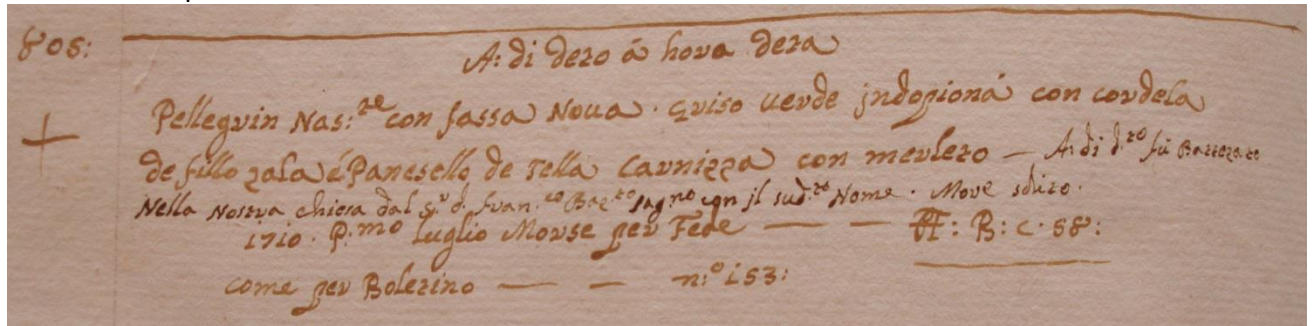 808:
A: di deto á hova deta
Pellegrin Nas:te con fassa Noua. Griso uerde jndopioná con cordela
de fillo zala é Panesello de Tella Carnizza con merleto — A: di d.to fú Battezato
Nella Nostra chiesa dal S.r d. Fran.co Bar.to Sag.no con jl sud.to Nome.
1710. P.mo Luglio Morse per Fede — — : B: C. 58:
come per Boletino — — n:o 153: